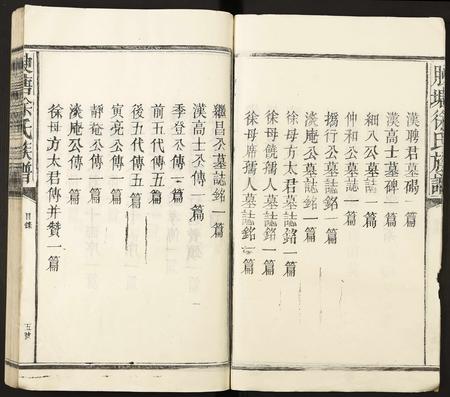 塘徐氏族譜
漢聘君墓碣一篇
漢高士墓碑一篇
細八公墓誌一篇
仲和公墓誌一篇
搢行公墓誌銘一篇
淡庵公墓誌銘一篇
徐母方太君墓誌銘一篇
徐母饒孺人墓誌銘一篇
徐母席孺人墓誌銘一篇
繼昌公墓誌銘一篇
漢高士公傳一篇
季登公傳一篇
前五代傳五篇
後五代傳五篇
寅亮公傳一篇
靜庵公傳一篇
淡庵公傳一篇
徐母方太君傳并贊一篇
塘徐氏族譜
目錄
五號